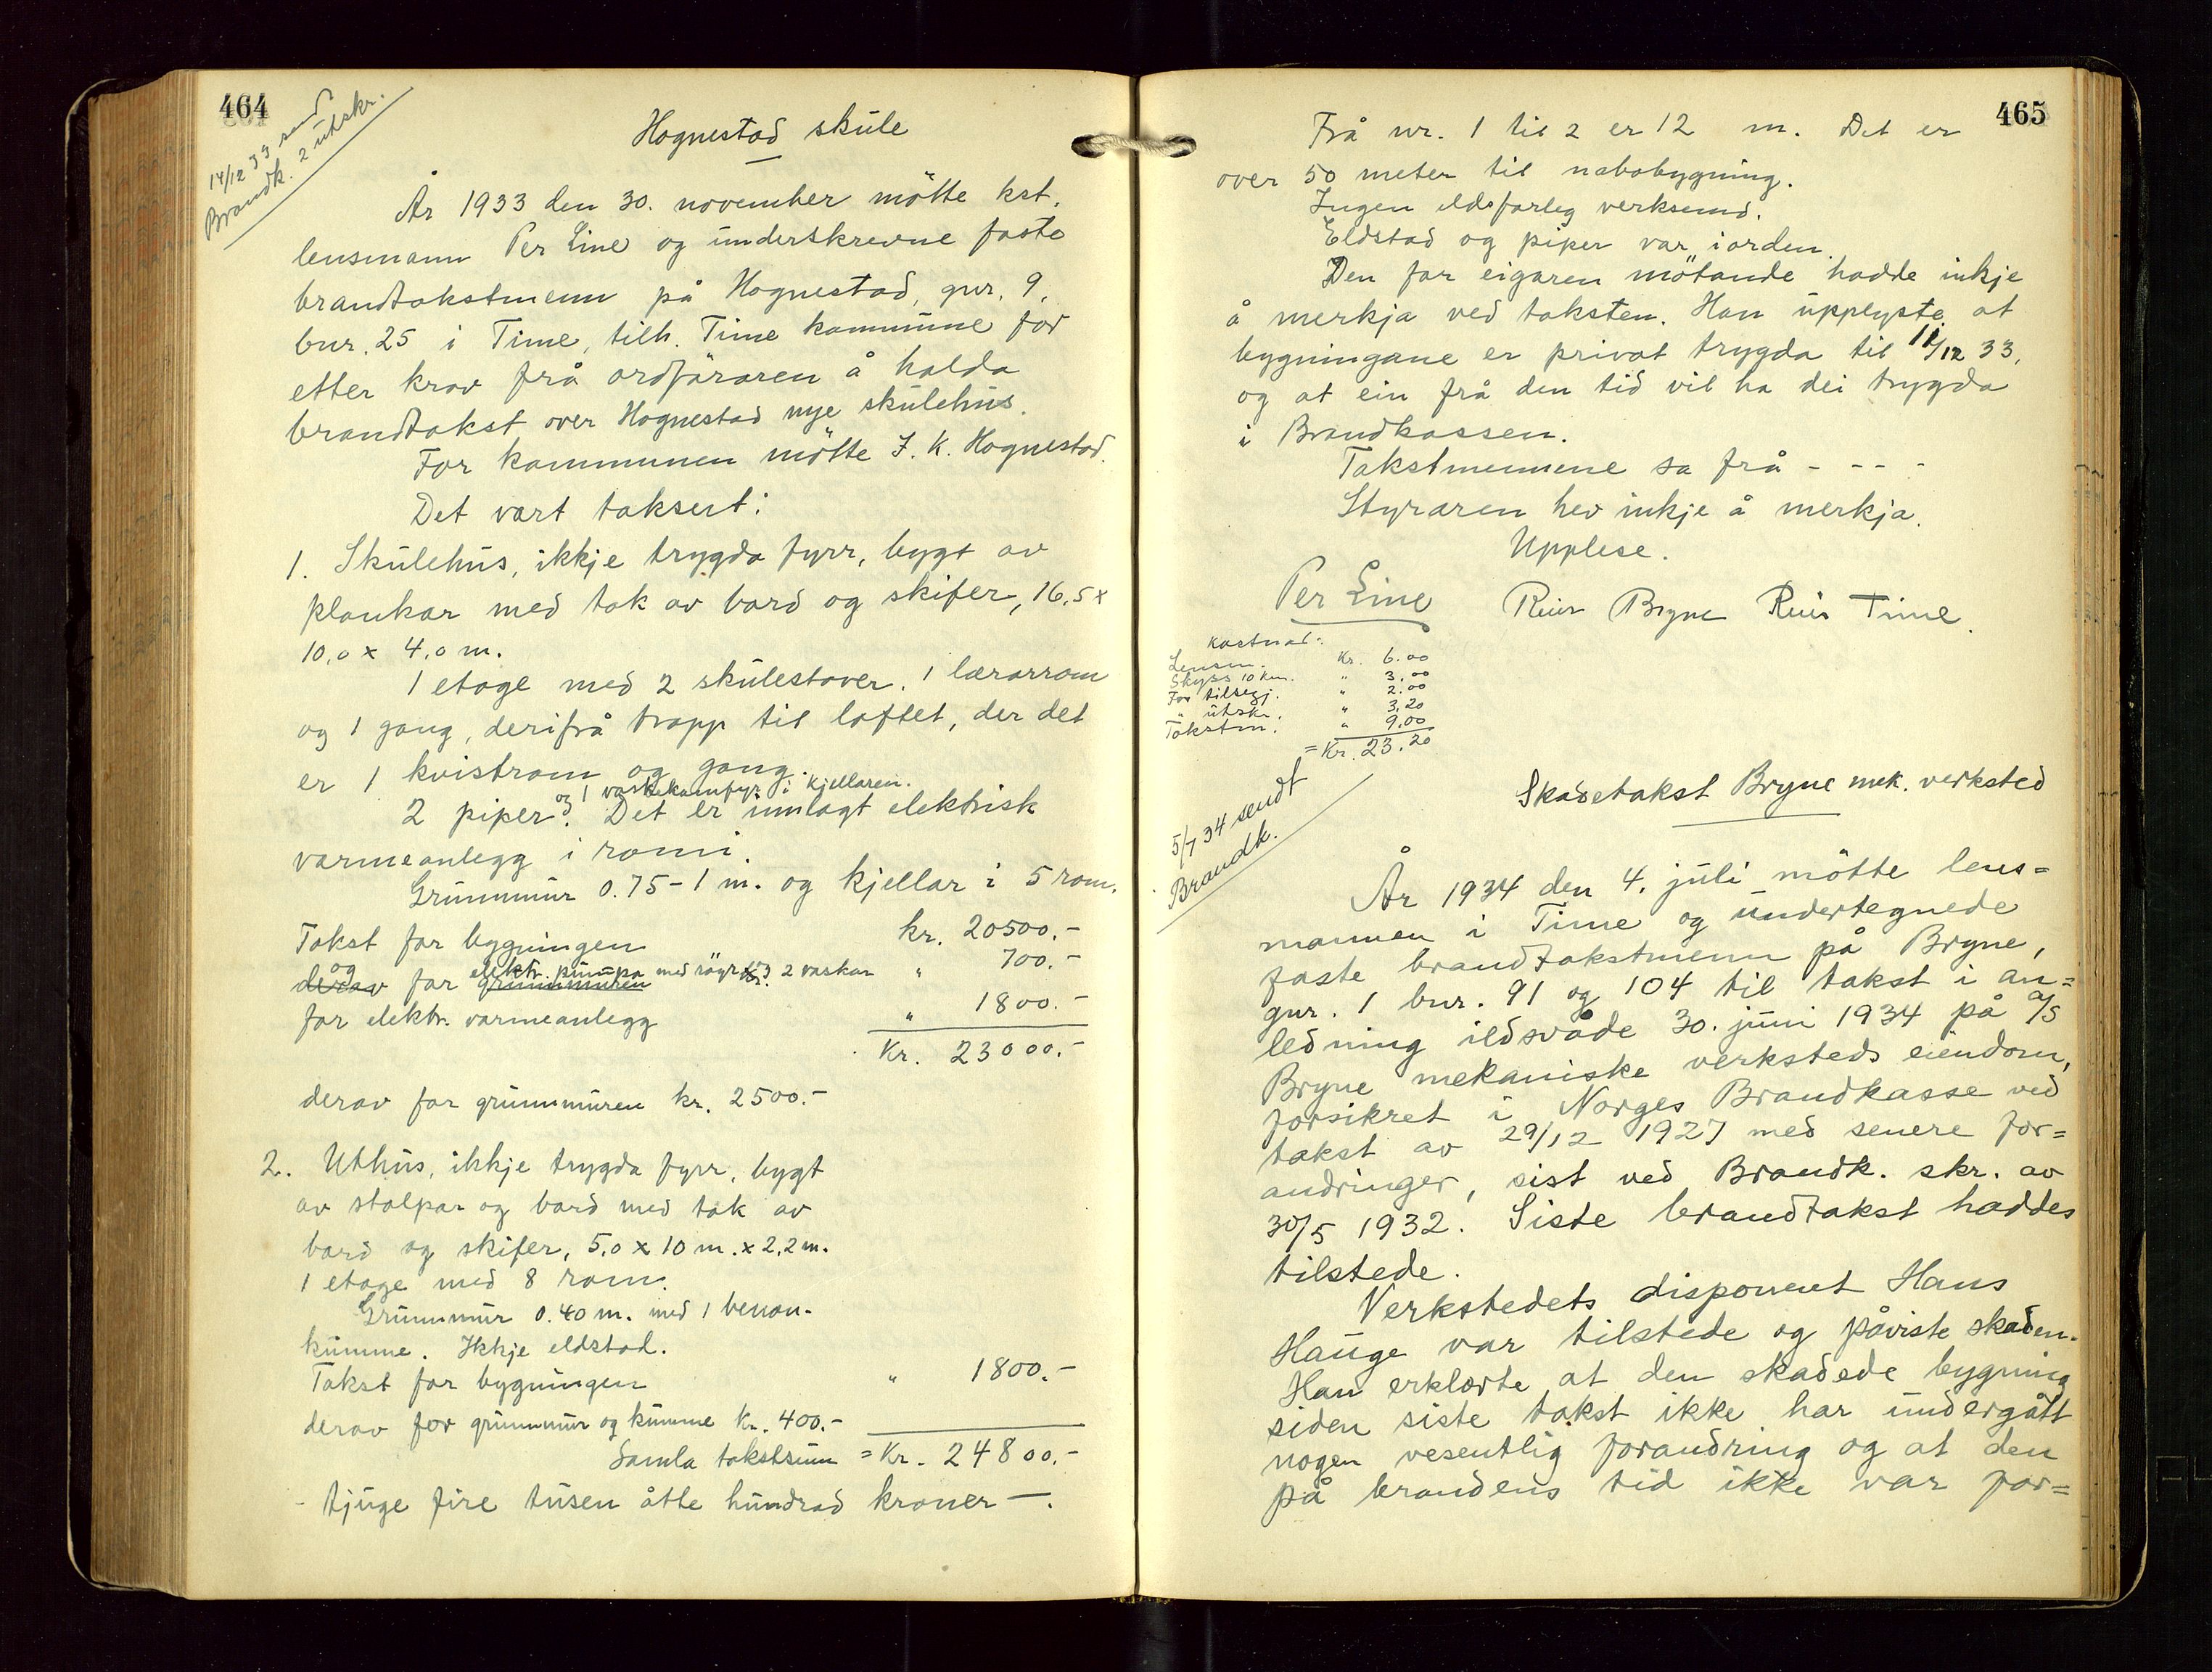 464
14/12 33 send
Brandk. 2 utskr.
Hognestad skule
År 1933 den 30. november møtte kst.
lensmann Per Line og underskrevne faste
brandtakstmenn på Hognestad, gnr. 9,
bnr. 25 i Time, tilh. Time kommune for
etter krav frå ordføraren å halda
brandtakst over Hognestad nye skulehus.
For kommunen møtte J. K. Hognestad.
Det vart taksert:
1. Skulehus, ikkje trygda fyrr, bygt av
plankar med tak av bord og skifer, 16,5 x
10,0 x 4,0 m.
1 etage med 2 skulestover. 1 lærarrom
og 1 gang, derifrå trapp til loftet, der det
er 1 kvistrom og gang.
og 1 vaskekomfyr i kjellaren.
2 piper. Det er innlagt elektrisk
varmeanlegg i romi.
Grunnmur 0.75-1 m. og kjellar i 5 rom.
Takst for bygningen kr. 20500.-
og elektr. pumpa med røyr og 2 vaskar
derav for grunnmuren kr. " 700.-
for elektr. varmeanlegg " 1800.-
Kr. 23000.-
derav for grunnmuren kr. 2500.-
2. Uthus, ikkje trygda fyrr, bygt
av stolpar og bord med tak av
bord og skifer, 5,0 x 10 m. x 2,2 m.
1 etage med 8 rom.
Grunnmur 0.40 m. med 1 
kumme. Ikkje eldstad.
Takst for bygningen " 1800.-
derav for grunnmur og kumme kr. 400.-
Samla takstsum = Kr. 24800.-
- tjuge fire tusen åtte hundrad kroner —.
465
Frå nr. 1 til 2 er 12 m. Det er
over 50 meter til nabobygning.
Ingen eldsfarleg verksemd.
Eldstad og piper var i orden.
Den for eigaren møtande hadde inkje
å merkja ved taksten. Han upplyste at
bygningane er privat trygda til 12/12 33,
og at ein frå den tid vil ha dei trygda
i Brandkassen.
Takstmennene sa frå - - - -
Styraren hev inkje å merkja.
Upplese.
Per Line Reier Bryne Reier Time.
Kostnad:
Lensm. Kr. 6.00
Skyss 10 km. " 3.00
For tilsegj. " 2.00
" utskr. " 3,20
Takstm. " 9.00
= Kr. 23.20
5/7 34 sendt
Brandk.
Skadetakst Bryne mek. verksted
År 1934 den 4. juli møtte lens=
mannen i Time og undertegnede
faste brandtakstmenn på Bryne,
gnr. 1 bnr. 91 og 104 til takst i an=
ledning ildsvåde 30. juni 1934 på a/s
Bryne mekaniske verksteds eiendom,
forsikret i Norges Brandkasse ved
takst av 29/12 1927 med senere for=
andringer, sist ved Brandk. skr. av
30/5 1932. Siste brandtakst haddes
tilstede.
Verkstedets disponent Hans
Hauge var tilstede og påviste skaden.
Han erklærte at den skadede bygning
siden siste takst ikke har undergått
nogen vesentlig forandring og at den
på brandens tid ikke var for=